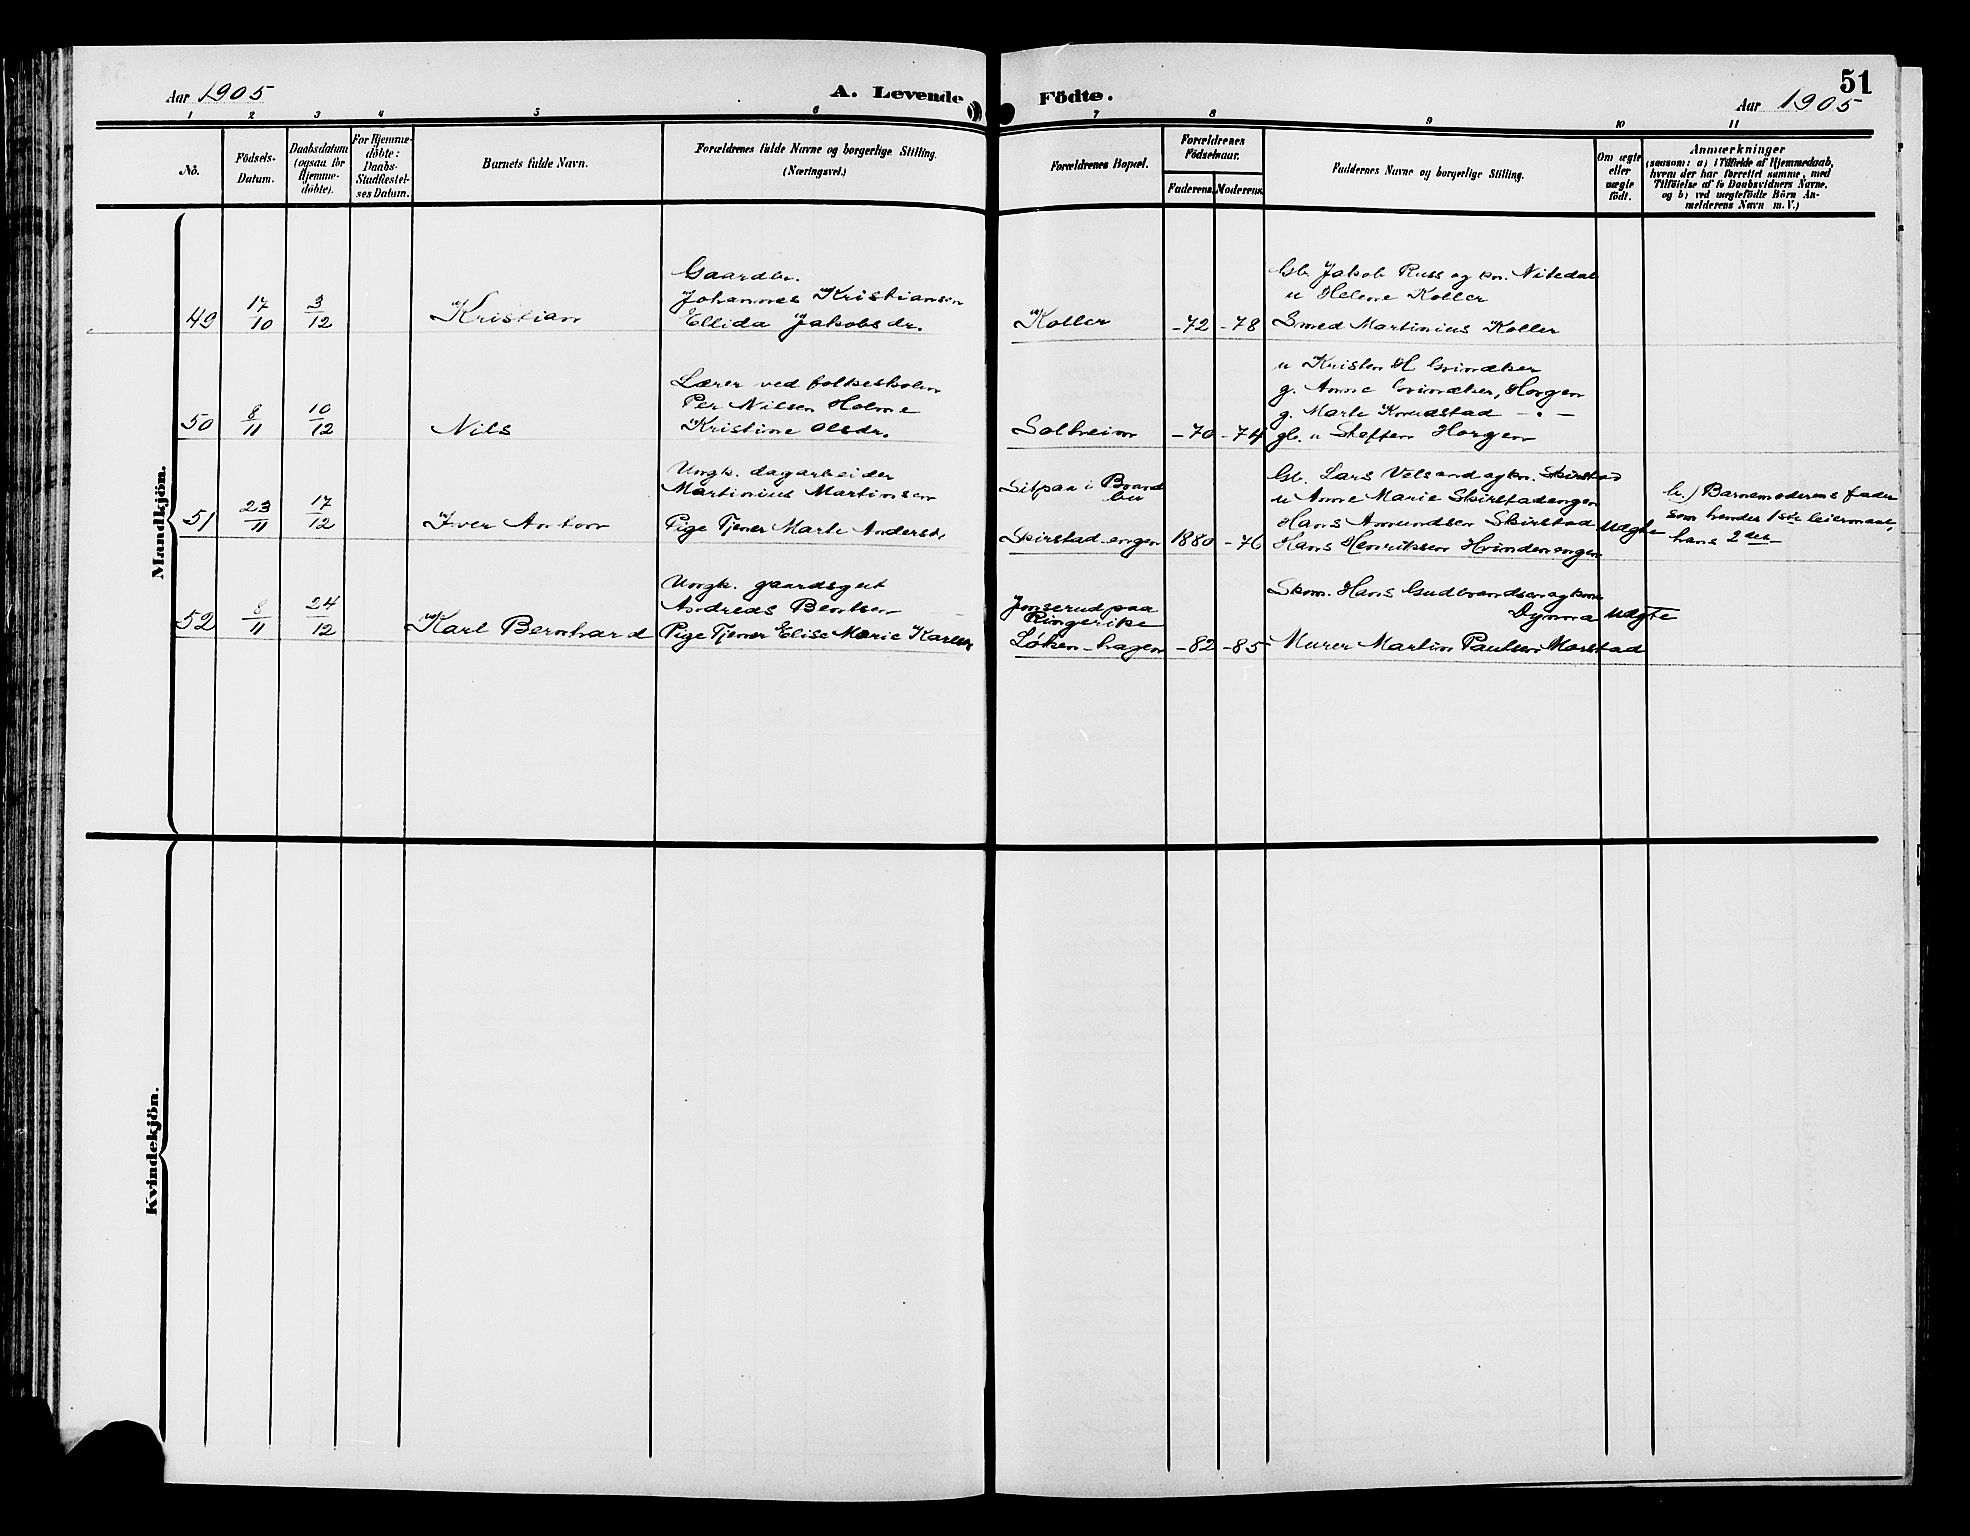 Aar 1905
A. Levende Födte.
51
Aar 1905
1 2 3 4 5 6 7 8 9 10 11
No.
Födsels-
Datum.
Daabsdatum
(ogsaa for
Hjemme-
döbte).
For Hjemme-
döbte:
Daabs-
Stadfæstel-
ses Datum.
Barnets fulde Navn.
Forældrenes fulde Navne og borgerlige Stilling.
(Næringsvei.)
Forældrenes Bopæl.
Forældrenes
Födselsaar.
Faderens.
Moderens.
Faddernes Navne og borgerlige Stilling.
Om ægte
eller
uægte
födt.
Anmærkninger
(saasom: a) i Tilfælde af Hjemmedaab,
hvem der har forrettet samme, med
Tilföielse af to Daabsvidners Navne,
og b) ved uægtefödte Börn An-
melderens Navn m. V.)
Mandkjön.
49
17/10
3/12
Kristian
Gaardbr.
Johannes Kristiansen
Ellida Jakobsdr.
Koller
-72
-78
Gb. Jakob Russ og kn. Nitedal
u Helene Koller
Smed Martinius Koller
50
8/11
10/12
Nils
Lærer ved folkeskolen
Per Nilsen Holme
Kristine Olsdr.
Solheim
-70
-74
u Kristen H Grinaker
g. Anne Grinaker, Horgen
g. Marte Knudstad - " -
gb. u Steffen Horgen
51
23/11
17/12
Iver Anton
Ungk. dagarbeider
Martinius Martinsen
Pige Tjener Marte Andersd.
paa i Brand
bu
Skirstad-engen
1880
-76
Gb. Lars Velsand og kn. Skirstad
u Anne Marie Skirstadengen
Hans Amundsen Skirstad
Hans Henriksen Hvindenengen
Uægte
b.) Barnemoderens fader
som hendes 1ste leiermaal,
hans 2det
52
8/11
24/12
Karl Bernhard
Ungk. gaardsgut
Andreas Bentsen
Pige Tjener Elise Marie Karlsd.
Jonserud paa
Ringerike
Løken-hagen
-82
-85
Skom. Hans Gudbrandsen og kone
Dynna
Murer Martin Paulsen Morstad
Uægte
Kvindekjön.